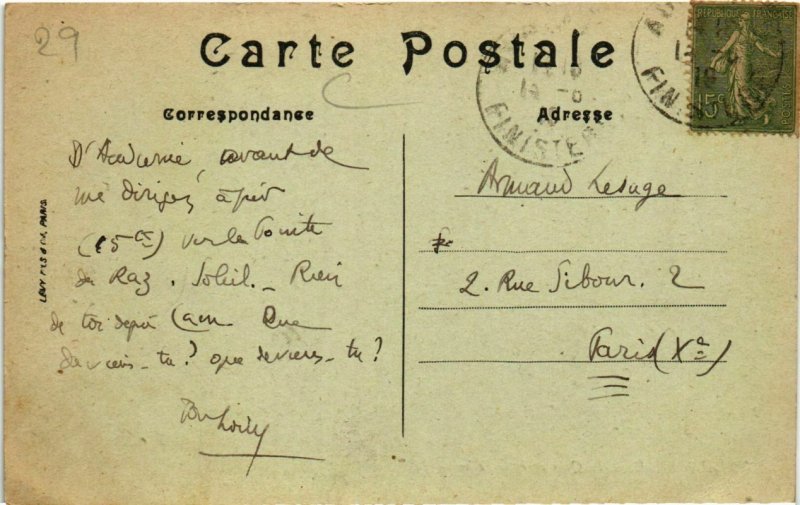 29
Carte Postale
Correspondance
Adresse
REPUBLIQUE FRANÇAISE
15c
POSTES
FINISTERE
FINIS
LEVY FILS & Cie, PARIS
D'Audierne, avant de
me diriger à pied
(15 ) vers la Pointe
du Raz. Soleil. Rien
de toi depuis Caen. Que
deviens-tu? Que deviens-tu?
Armand Lesage
2. Rue Sibour. 2
Paris (Xe)